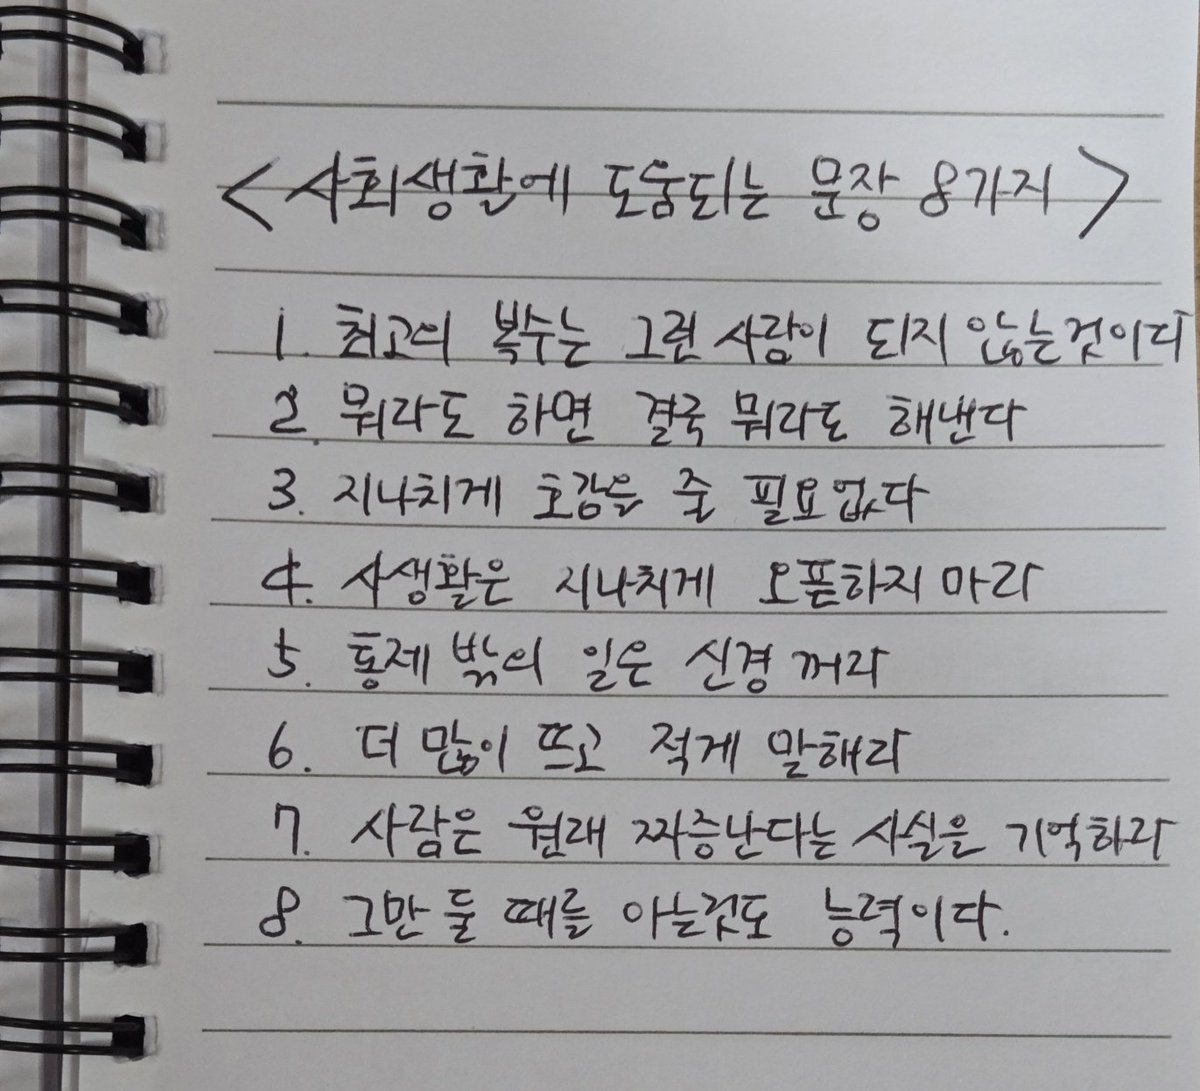 <사회생활에 도움되는 문장 8가지>
1. 최고의 복수는 그런 사람이 되지 않는것이다
2. 뭐라도 하면 결국 뭐라도 해낸다
3. 지나치게 호감을 줄 필요없다
4. 사생활은 지나치게 오픈하지 마라
5. 통제 밖의 일은 신경 꺼라
6. 더 많이 뜨고 적게 말해라
7. 사람은 원래 짜증난다는 사실을 기억하라
8. 그만 둘 때를 아는것도 능력이다.